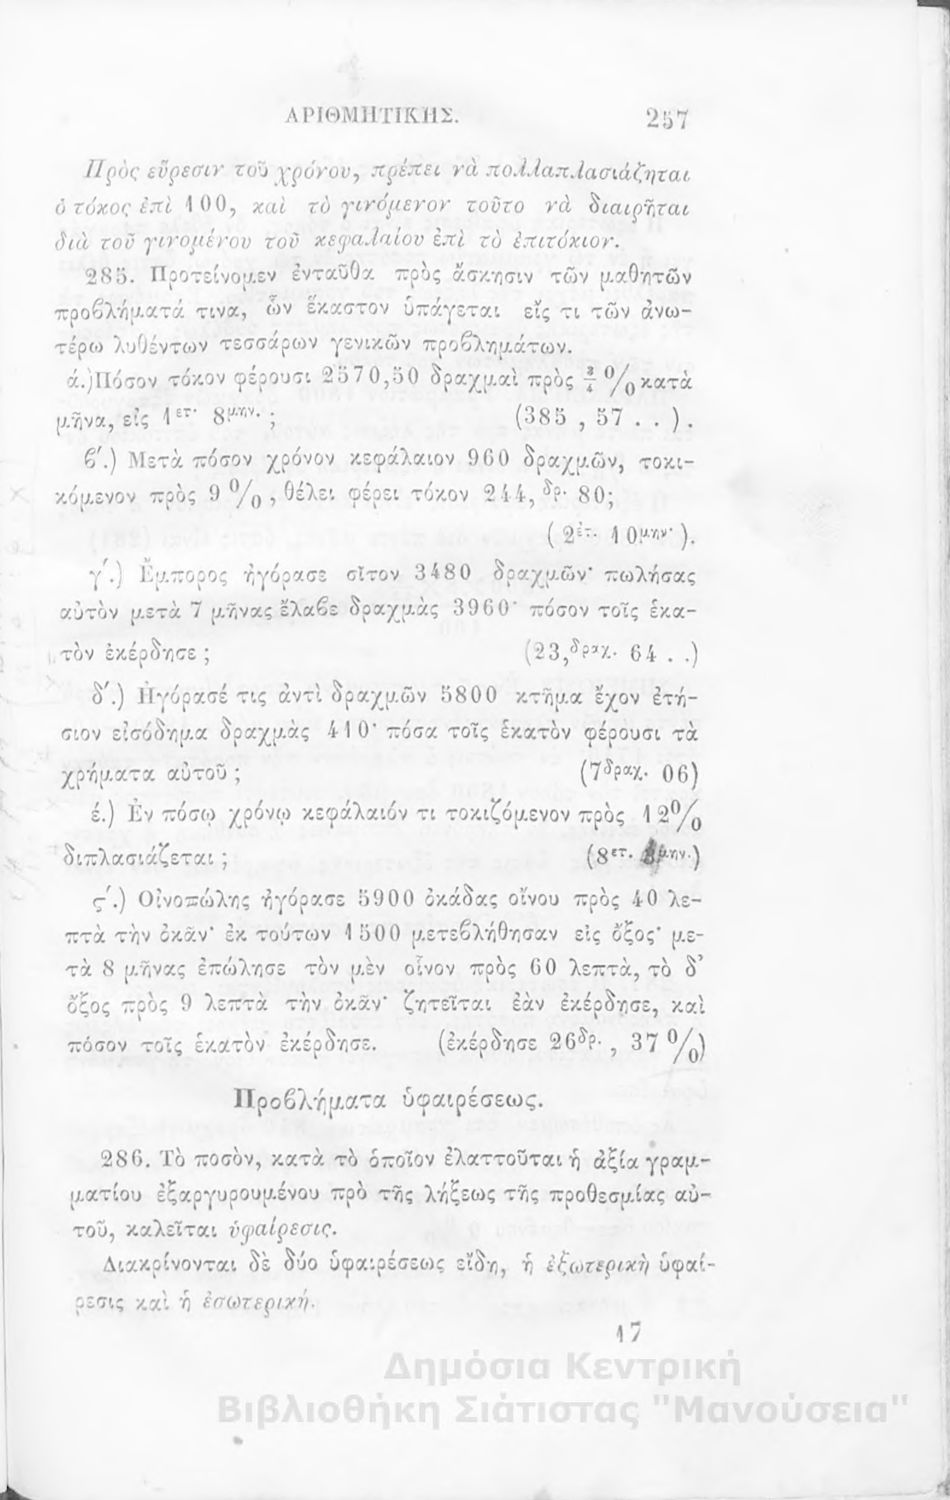 ΑΡΙΘΜΗΤΙΚΗΣ. 257
Πρὸς εὕρεσιν τοῦ χρόνου, πρέπει νὰ πολλαπλασιάζηται
ὁ τόκος ἐπὶ 100, καὶ τὸ γινόμενον τοῦτο νὰ διαιρῆται
διὰ τοῦ γινομένου τοῦ κεφαλαίου ἐπὶ τὸ ἐπιτόκιον.
285. Προτείνομεν ἐνταῦθα πρὸς ἄσκησιν τῶν μαθητῶν
προβλήματά τινα, ὧν ἕκαστον ὑπάγεται εἴς τι τῶν ἀνω-
τέρω λυθέντων τεσσάρων γενικῶν προβλημάτων.
ά.) Πόσον τόκον φέρουσι 2570,50 δραχμαὶ πρὸς ¾ % κατὰ
μῆνα, εἰς 1ἔτ. 8μην. ; (385 , 57 . . ).
β΄.) Μετὰ πόσον χρόνον κεφάλαιον 960 δραχμῶν, τοκι-
κόμενον πρὸς 9 % , θέλει φέρει τόκον 244,δρ. 80;
( 2ἔτ. 10μην. ).
γ΄.) Ἔμπορος ἠγόρασε σῖτον 3480 δραχμῶν· πωλήσας
αὐτὸν μετὰ 7 μῆνας ἔλαβε δραχμὰς 3960· πόσον τοῖς ἑκα-
τὸν ἐκέρδησε ; (23,δραχ. 64 . .)
δ΄.) Ἠγόρασέ τις ἀντὶ δραχμῶν 5800 κτῆμα ἔχον ἐτή-
σιον εἰσόδημα δραχμὰς 410· πόσα τοῖς ἑκατὸν φέρουσι τὰ
χρήματα αὐτοῦ ; (7δραχ. 06)
έ.) Ἐν πόσῳ χρόνῳ κεφάλαιόν τι τοκιζόμενον πρὸς 12%
διπλασιάζεται ; (8ετ. μην.)
ς΄.) Οἰνοπώλης ἠγόρασε 5900 ὀκάδας οἴνου πρὸς 40 λε-
πτὰ τὴν ὀκᾶν· ἐκ τούτων 1500 μετεβλήθησαν εἰς ὄξος· με-
τὰ 8 μῆνας ἐπώλησε τὸν μὲν οἶνον πρὸς 60 λεπτὰ, τὸ δ᾽
ὄξος πρὸς 9 λεπτὰ τὴν ὀκᾶν· ζητεῖται ἐὰν ἐκέρδησε, καὶ
πόσον τοῖς ἑκατὸν ἐκέρδησε. (ἐκέρδησε 26δρ. , 37 %)
Προβλήματα ὑφαιρέσεως.
286. Τὸ ποσὸν, κατὰ τὸ ὁποῖον ἐλαττοῦται ἡ ἀξία γραμ-
ματίου ἐξαργυρουμένου πρὸ τῆς λήξεως τῆς προθεσμίας αὐ-
τοῦ, καλεῖται ὑφαίρεσις.
Διακρίνονται δὲ δύο ὑφαιρέσεως εἴδη, ἡ ἐξωτερικὴ ὑφαί-
ρεσις καὶ ἡ ἐσωτερική.
17
Δημόσια Κεντρική
Βιβλιοθήκη Σιάτιστας "Μανούσεια"